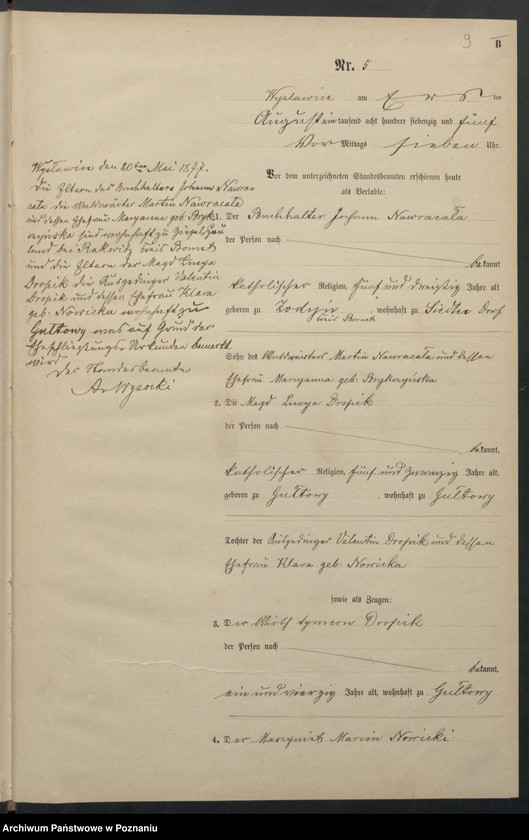 9 B
Nr. 5
Wyslawice am Ersten
August ein tausend acht hundert siebenzig und fünf
Vor Mittags sieben Uhr.
Vor dem unterzeichneten Standesbeamten erschienen heute
als Verlobte:
1. Der Buchhalter Johann Nawracala
der Person nach
bekannt
katholischer Religion, fünf und dreißig Jahre alt
geboren zu Zodyn, wohnhaft zu Siedlec Dorf
Kreis Bomst
Sohn des Waldwärters Martin Nawracala und dessen
Ehefrau Maryanna geb.
2. Die Magd Lucya Dropik
der Person nach
bekannt,
katholischer Religion, fünf und zwanzig Jahre alt,
geboren zu Gultowy, wohnhaft zu Gultowy
Tochter der Ausgedinger Valentin Dropik und dessen
Ehefrau Klara geb: Nowicka
sowie als Zeugen:
3. Der Wirth Symon Dropik
der Person nach
bekannt,
ein und vierzig Jahre alt, wohnhaft zu Gultowy
4. Der Marcin Nowicki
Wyslawice den 20ten Mai 1877.
Die Eltern des Buchhalters Johann Nawra-
cala die Waldwärter Martin Nawracala
und dessen Ehefrau Maryanna geb:
sind wohnhaft zu
bei Rakwitz, Kreis Bomst
und die Eltern der Magd Lucya
Dropik die Ausgedinger Valentin
Dropik und dessen Ehefrau Klara
geb: Nowicka wohnhaft zu
Gultowy was auf Grund der
Eheschließungs-Urkunden bemerkt
wird
Der Standesbeamte
Archiwum Państwowe w Poznaniu